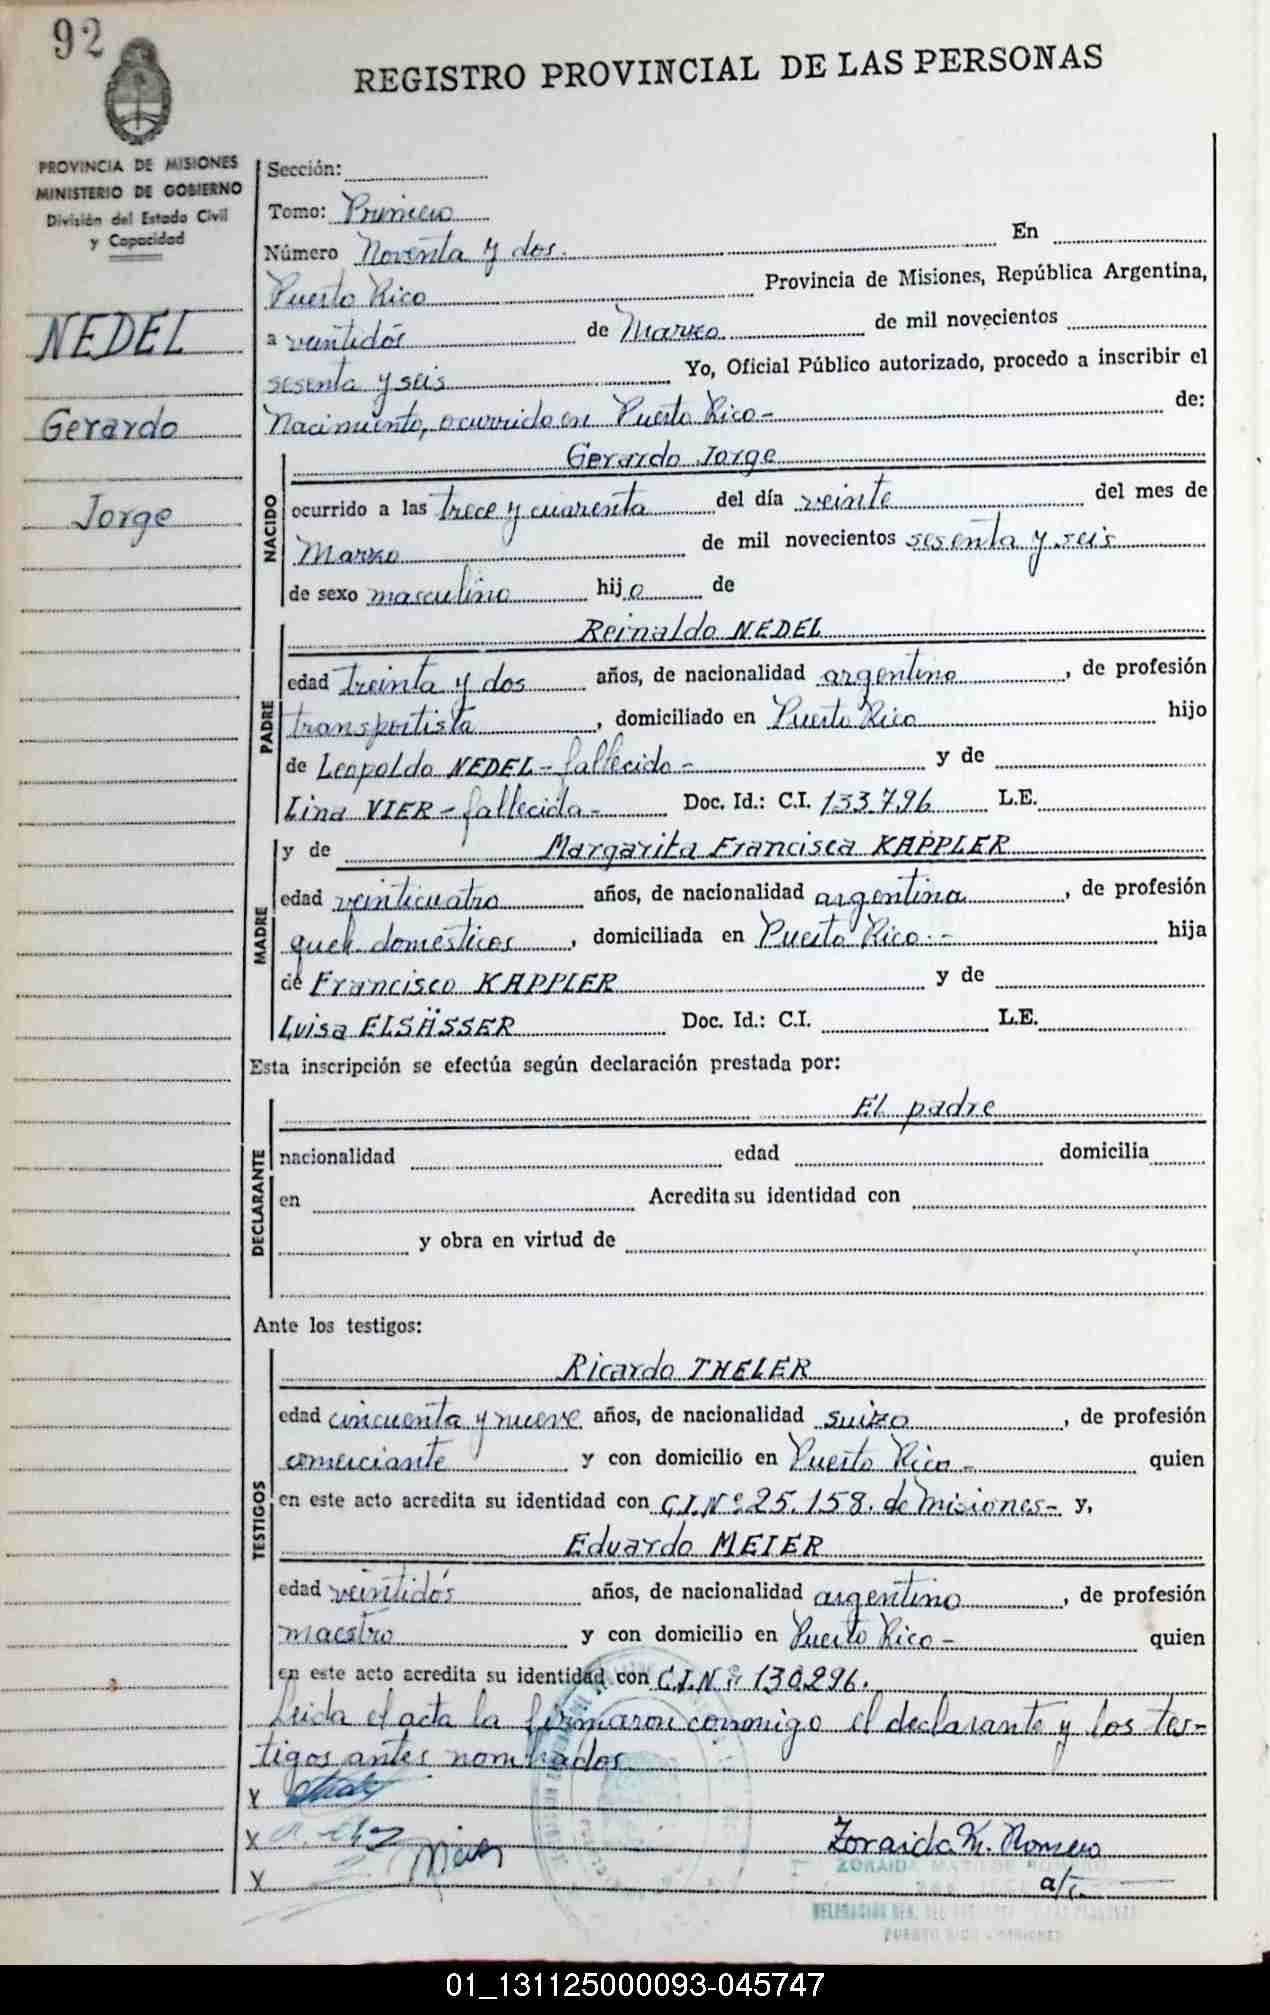 92
REGISTRO PROVINCIAL DE LAS PERSONAS
PROVINCIA DE MISIONES
MINISTERIO DE GOBIERNO
División del Estado Civil
y Capacidad
NEDEL
Gerardo
Jorge
Sección:
Tomo: Primero
Número Noventa y dos. En
Puerto Rico Provincia de Misiones, República Argentina,
a veintidós de Marzo de mil novecientos
sesenta y seis Yo, Oficial Público autorizado, procedo a inscribir el
Nacimiento, ocurrido en Puerto Rico- de:
NACIDO
Gerardo Jorge
ocurrido a las trece y cuarenta del día veinte del mes de
Marzo de mil novecientos sesenta y seis
de sexo masculino hijo de
PADRE
Reinaldo NEDEL
edad treinta y dos años, de nacionalidad argentino, de profesión
transportista, domiciliado en Puerto Rico hijo
de Leopoldo NEDEL- fallecido- y de
Lina VIER- fallecida- Doc. Id.: C.I. 133.796 L.E.
MADRE
y de Margarita Francisca KAPPLER
edad veinticuatro años, de nacionalidad argentina, de profesión
queh. domésticos, domiciliada en Puerto Rico.- hija
de Francisco KAPPLER y de
Luisa ELSÄSSER Doc. Id.: C.I. L.E.
Esta inscripción se efectúa según declaración prestada por:
DECLARANTE
El padre
nacionalidad edad domicilia
en Acredita su identidad con
y obra en virtud de
Ante los testigos:
TESTIGOS
Ricardo THELER
edad cincuenta y nueve años, de nacionalidad suizo, de profesión
comerciante y con domicilio en Puerto Rico- quien
en este acto acredita su identidad con C.I.Nº 25.158. de Misiones- y,
Eduardo MEIER
edad veintidós años, de nacionalidad argentino, de profesión
maestro y con domicilio en Puerto Rico- quien
en este acto acredita su identidad con C.I.Nº 130.296.
Leída el acta la firmaron conmigo el declarante y los tes-
tigos antes nombrados.
Y
X
Y
Zoraida M. Romero
a/c.
ZORAIDA MATILDE ROMERO
PUERTO RICO - MISIONES
01_131125000093-045747